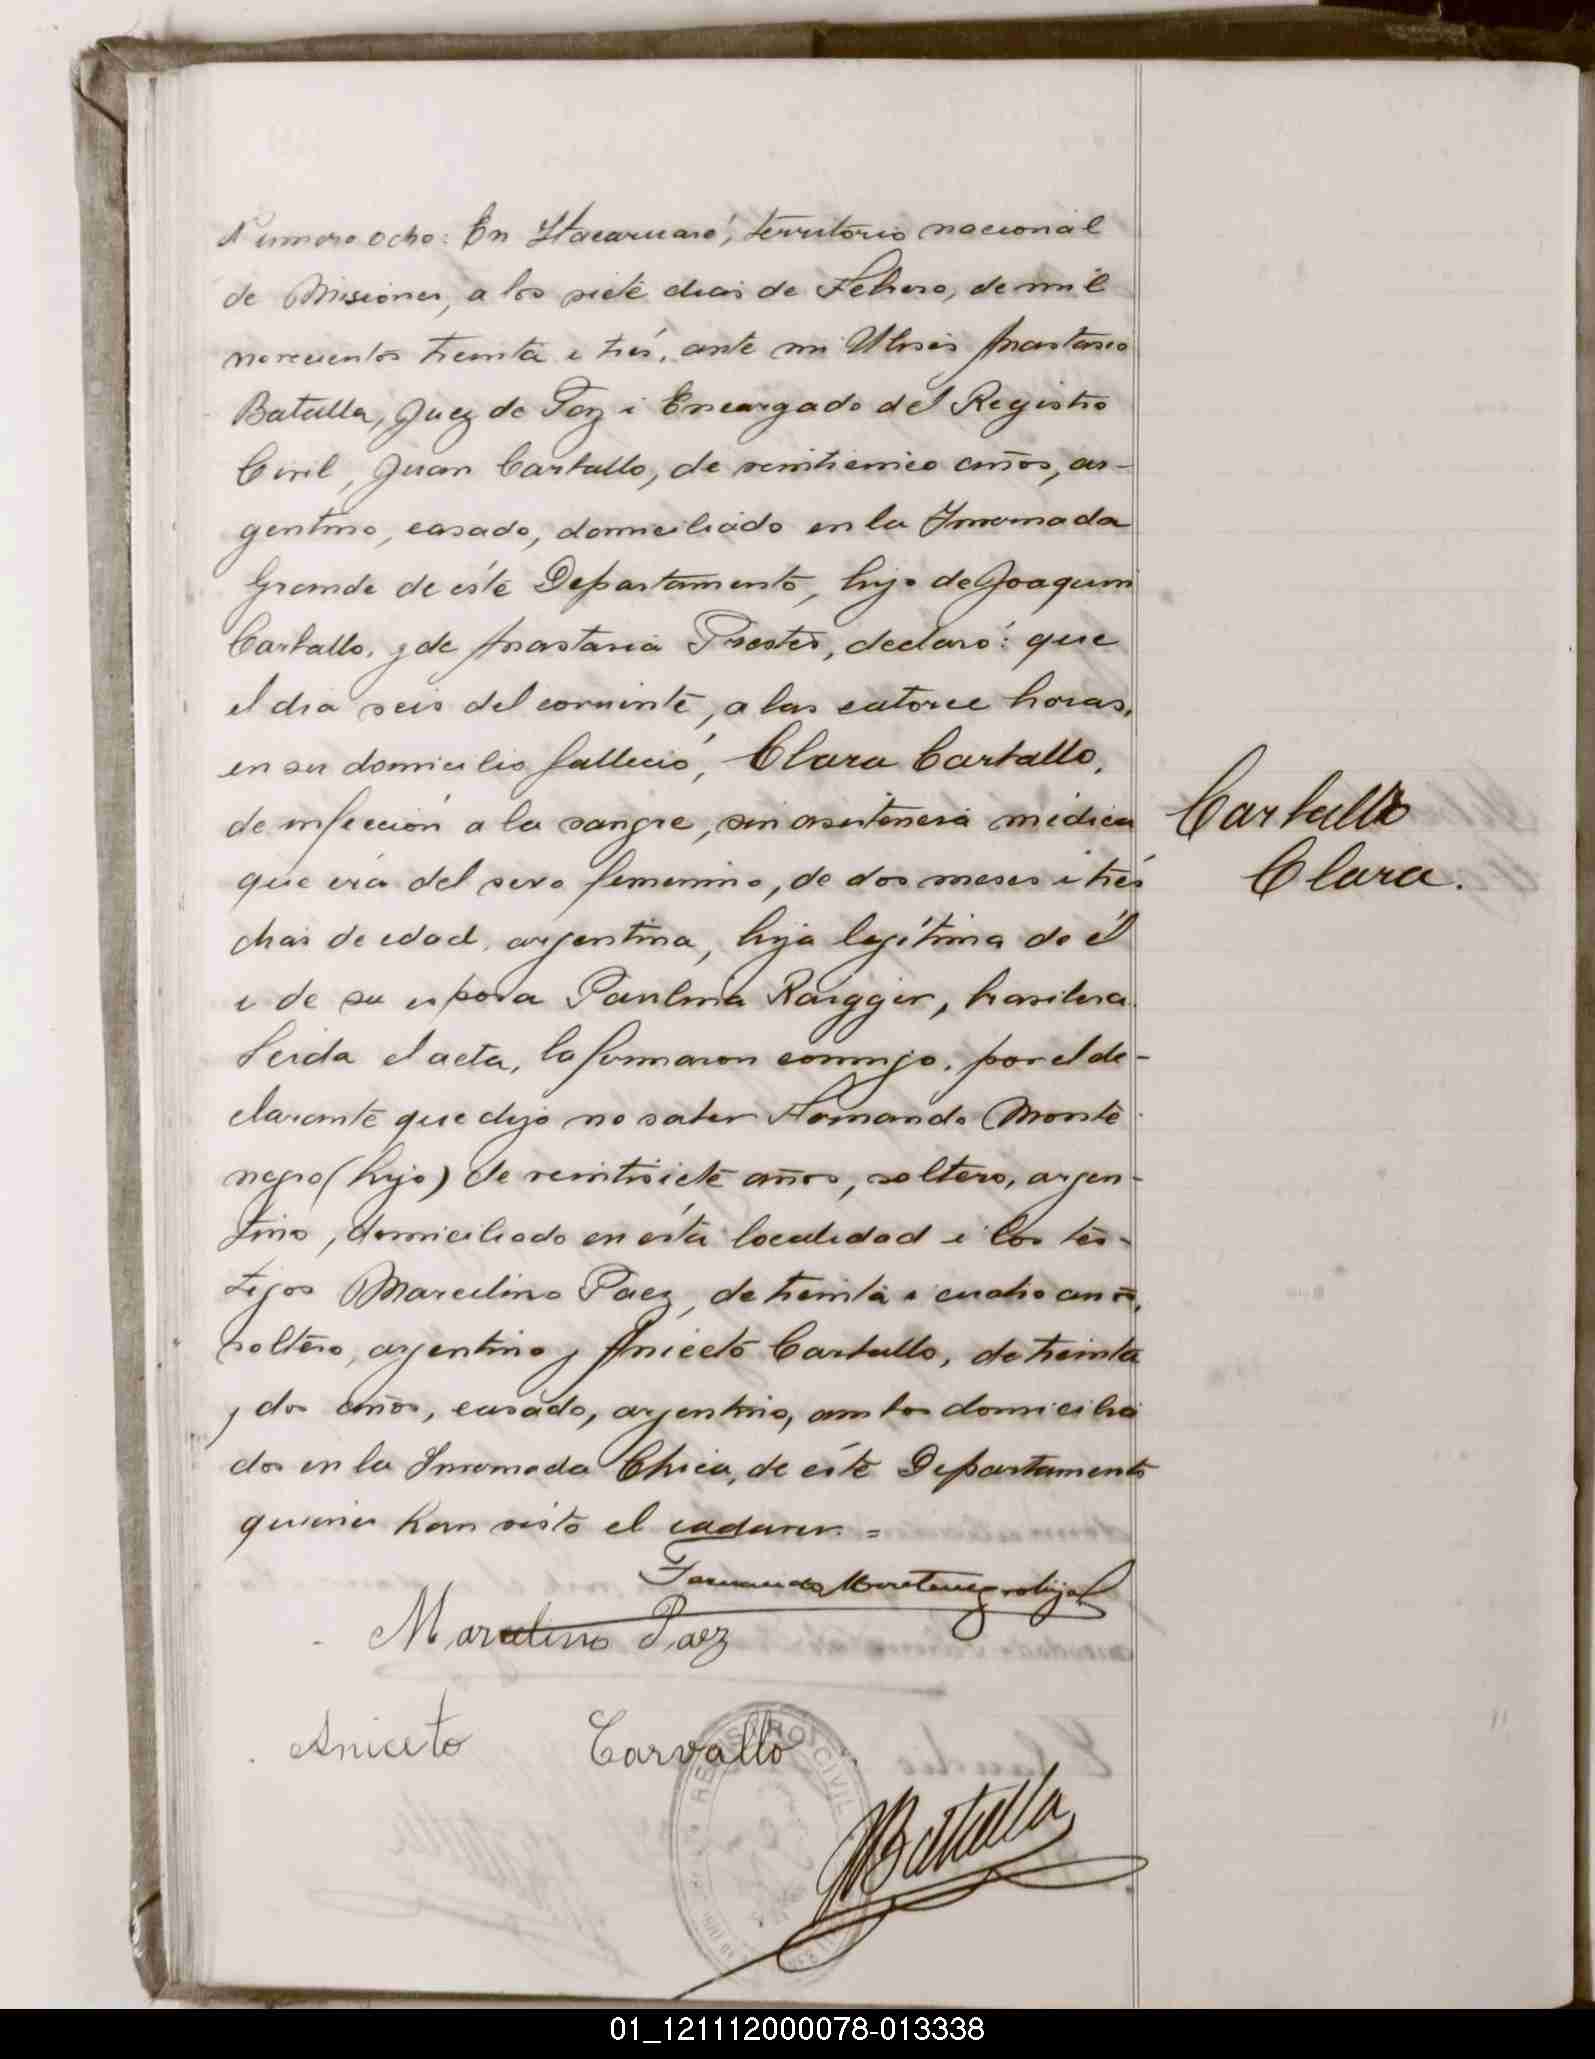 Numero ocho: En Itacaruaré, territorio nacional
de Misiones, a los siete dias de Febrero, de mil
novecientos treinta i trés, ante mi Ulises Anastasio
Batalla, Juez de Paz i Encargado del Registro
Civil, Juan Carballo, de veinticinco años, ar-
gentino, casado, domiciliado en la Invernada
Grande de éste Departamento, hijo de Joaquin
Carballo, y de Anastasia Prestes, declaró: que
el dia seis del corriente, a las catorce horas,
en su domicilio falleció, Clara Carballo,
de infección a la sangre, sin asistencia médica
que era del sexo femenino, de dos meses i trés
dias de edad, argentina, hija legítima de él
i de su esposa Paulina Raigger, brasilera.
Leida el acta, la firmaron conmigo, por el de-
clarante que dijo no saber Fernando Monte
negro (hijo) de veintisiete años, soltero, argen-
tino, domiciliado en ésta localidad i los tes-
tigos Marcelino Paez, de treinta i cuatro años,
soltero, argentino y Aniceto Carballo, de treinta
y dos años, casado, argentino, ambos domicilia
dos en la Invernada Chica, de éste Departamento
quienes han visto el cadaver. =
Carballo
Clara.
Fernando Montenegro hijo
Marcelino Paez
Aniceto Carvallo
REGISTRO CIVIL
UBatalla
01_121112000078-013338